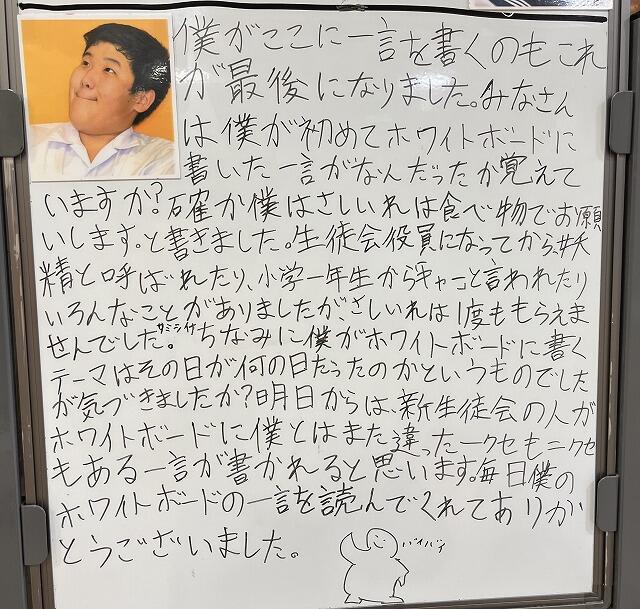 僕がここに一言を書くのもこれ
が最後になりました。みなさん
は僕が初めてホワイトボードに
書いた一言がなんだったか覚えて
いますか?確か僕はさしいれは食べ物でお願
いします。と書きました。生徒会役員になってから、妖
精と呼ばれたり、小学一年生からキャーと言われたり
いろんなことがありましたが、さしいれは1度ももらえま
せんでした。ちなみに僕がホワイトボードに書く
テーマはその日が何の日だったのかというものでした
が気づきましたか?明日からは、新生徒会の人が
ホワイトボードに僕とはまた違った一クセもニクセ
もある一言が書かれると思います。毎日僕の
ホワイトボードの一言を読んでくれてありが
とうございました。
バイバイ